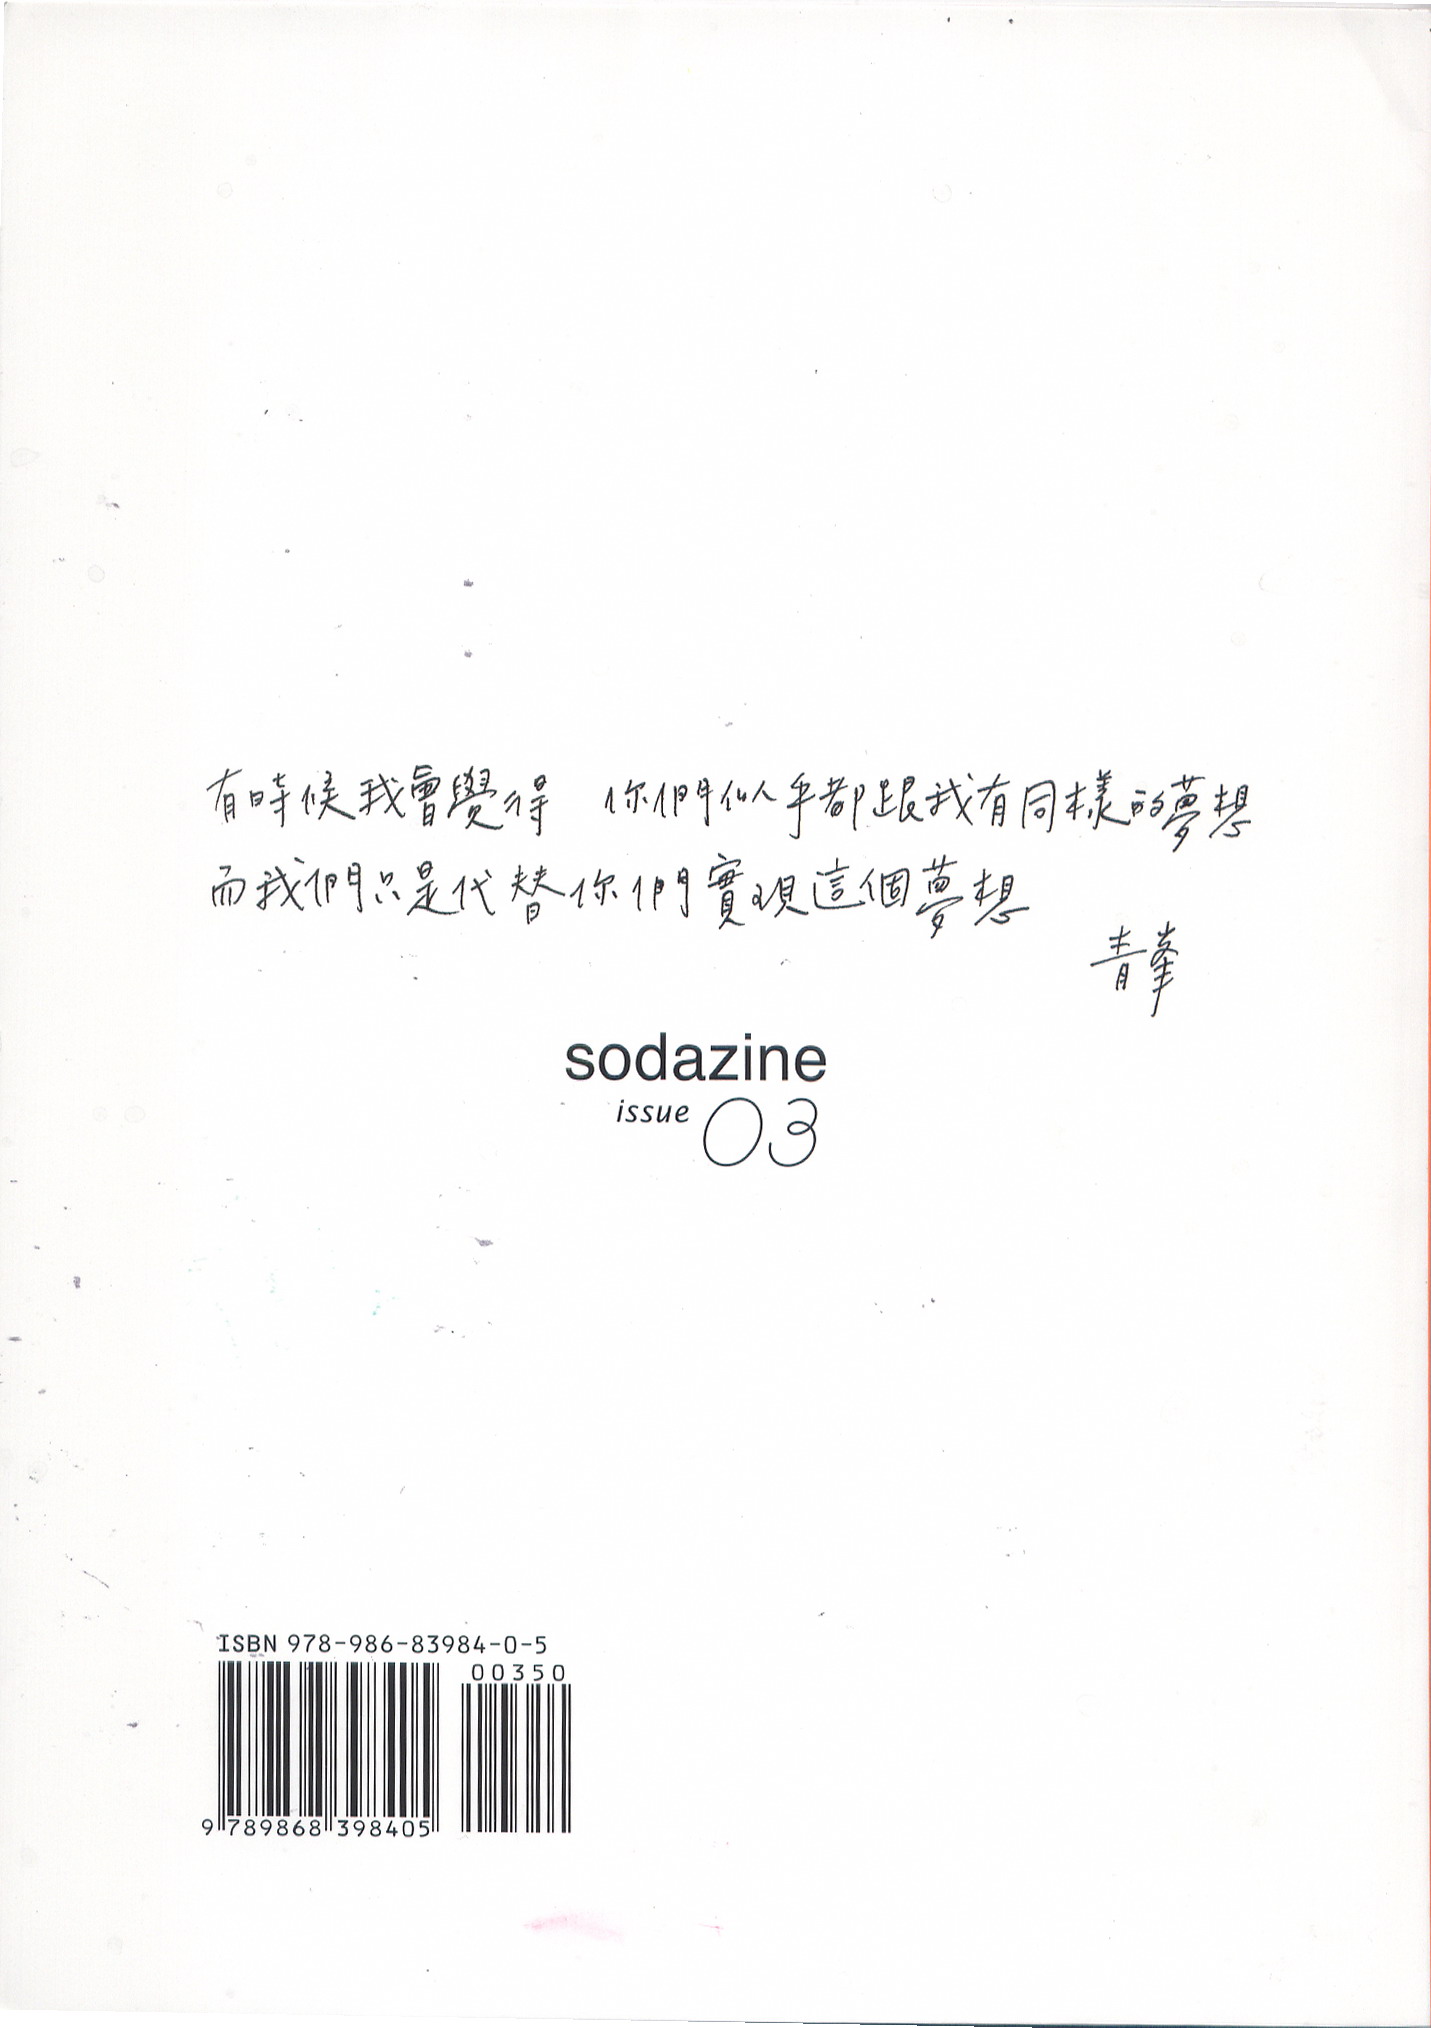 有時候我會覺得 你們似乎都跟我有同樣的夢想
而我們只是代替你們實現這個夢想
青峯
sodazine
issue 03
ISBN 978-986-83984-0-5
00350
9 789868 398405